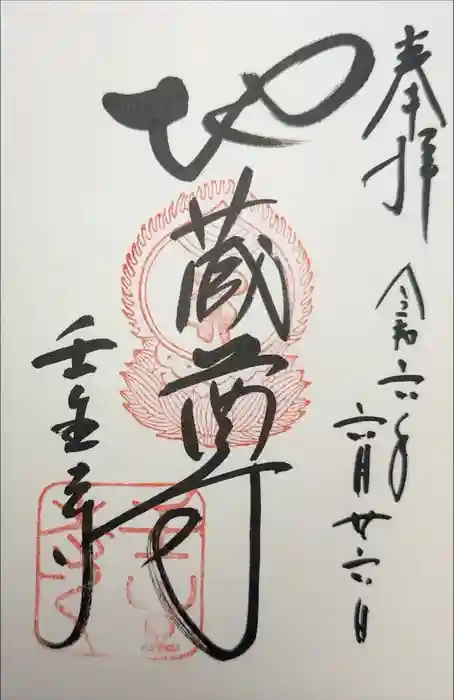 奉拝
令和六年
六月廿六日
地蔵尊
壬生寺